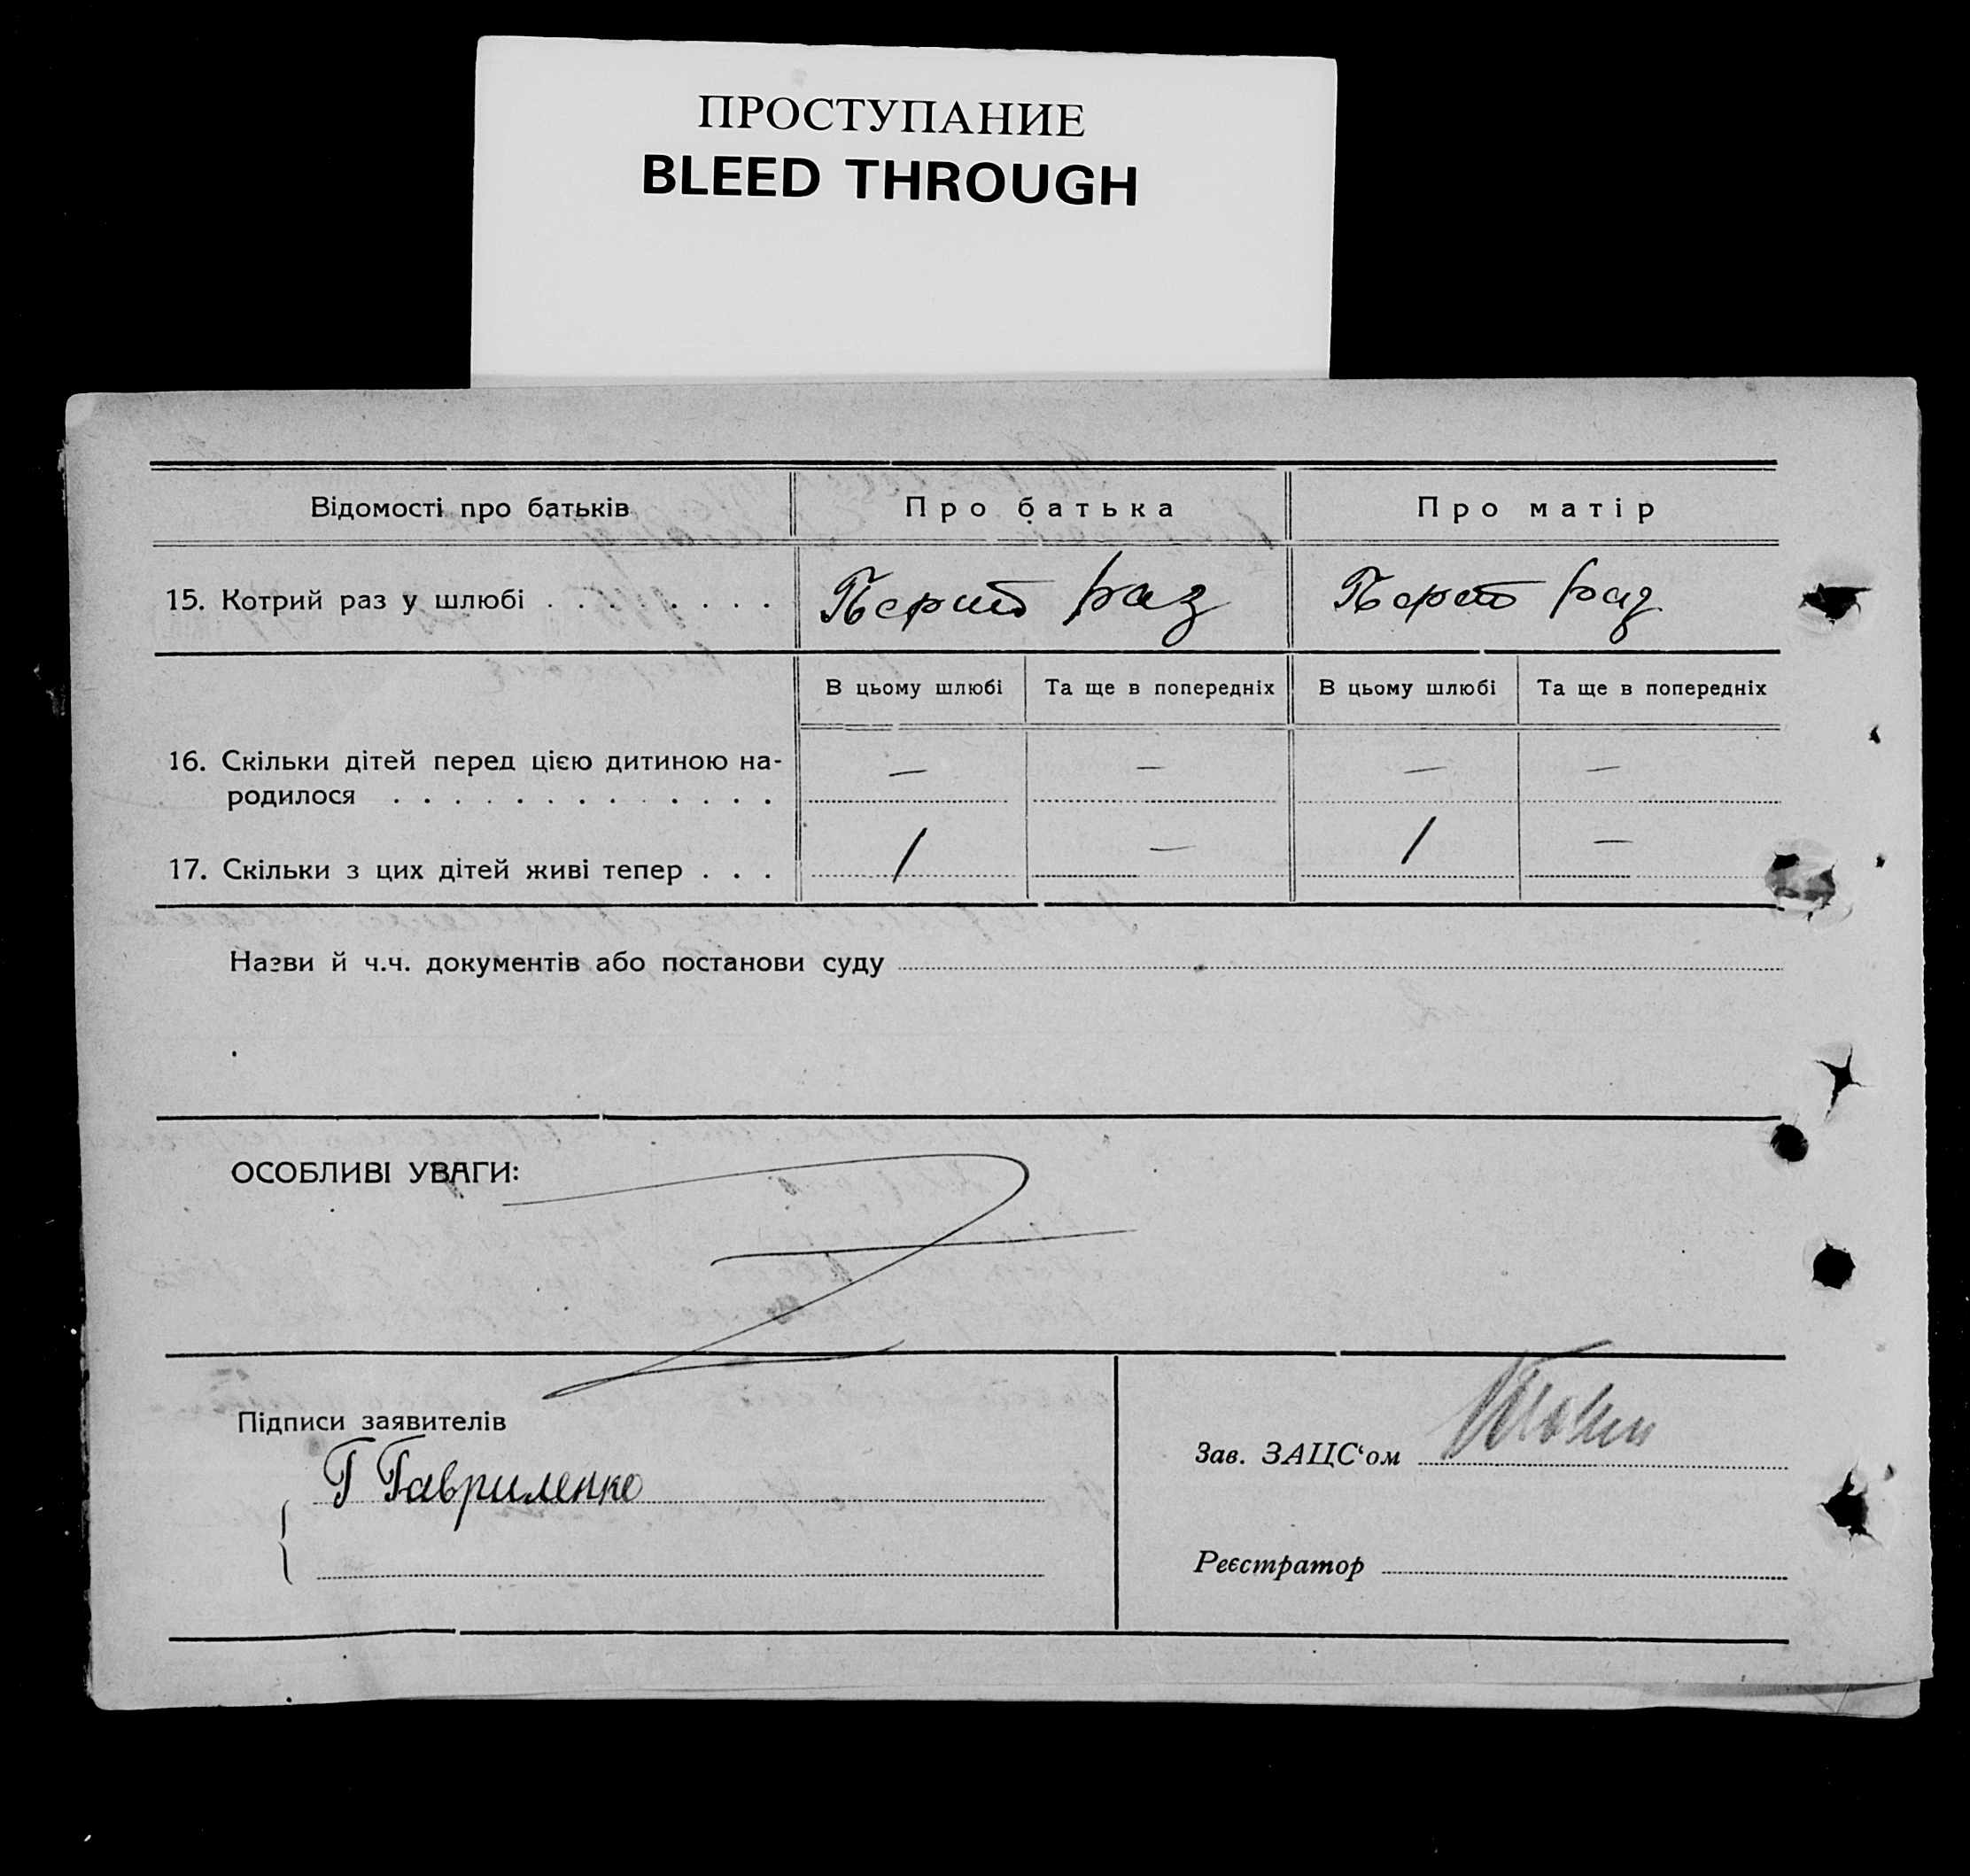 ПРОСТУПАНИЕ
BLEED THROUGH
Відомості про батьків Про батька Про матір
15. Котрий раз у шлюбі . . . . . . . . Перший раз Перший раз
В цьому шлюбі Та ще в попередніх В цьому шлюбі Та ще в попередніх
16. Скільки дітей перед цією дитиною на-
родилося . . . . . . . . . . . . . — — — —
17. Скільки з цих дітей живі тепер . . . 1 — 1 —
Назви й ч.ч. документів або постанови суду
ОСОБЛИВІ УВАГИ:
Підписи заявителів
Г Гавриленко
Зав. ЗАЦС‘ом
Реєстратор